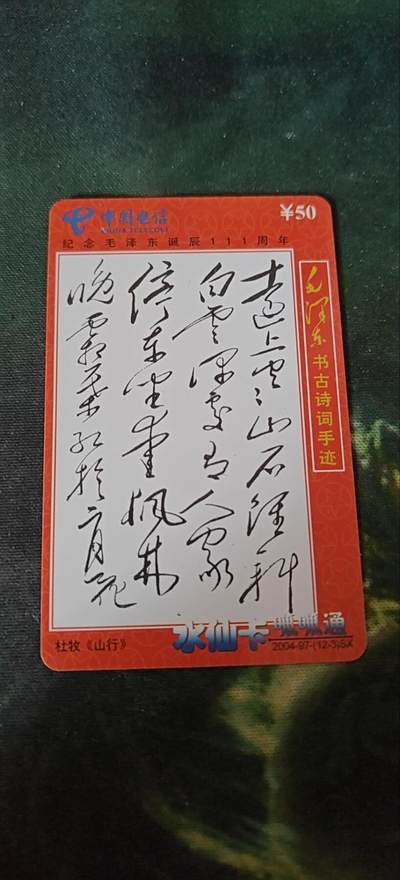 中国电信
CHINA TELECOM
¥50
纪念毛泽东诞辰111周年
毛泽东书古诗词手迹
遠上寒山石徑斜
白雲深處有人家
停車坐愛楓林
晚霜葉紅於二月花
水仙卡
呱呱通
杜牧《山行》
2004-97-(12-3)SX